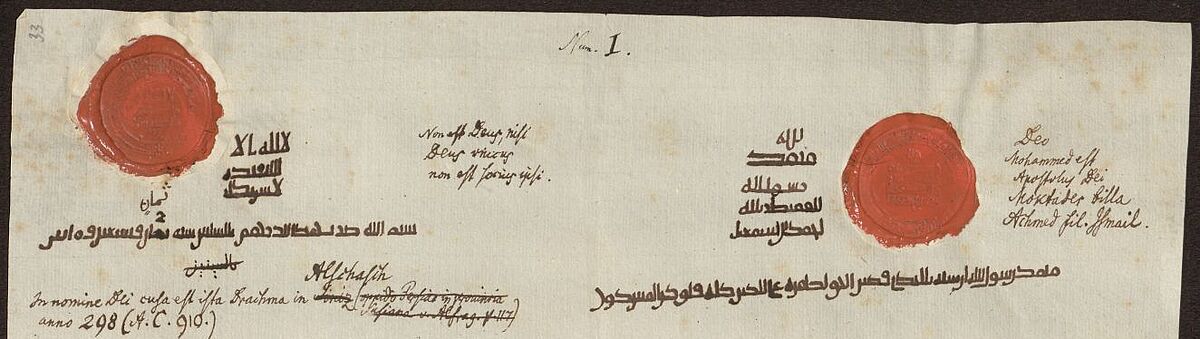 33
Num. 1.
لا اله الا
الله وحده
لا شريك له
Non est Deus, nisi
Deus unicus
non est socius ipsi.
لله
محمد
رسول الله
المقتدر بالله
احمد بن اسمعيل
Deo
Mohammed est
Apostolus Dei
Moktader billa
Achmed fil. Ismail.
ثمان
2
بسم الله ضرب هذا الدرهم بالشاش سنة ثمان و تسعين و مائتين
Alschasch
In nomine Dei cusa est ista Drachma in Siniz (oppido Persiae in provincia
Susiana v. Alfrag. p. 117)
anno 298 (A.C. 910.)
محمد رسول الله ارسله بالهدى و دين الحق ليظهره على الدين كله و لو كره المشركون